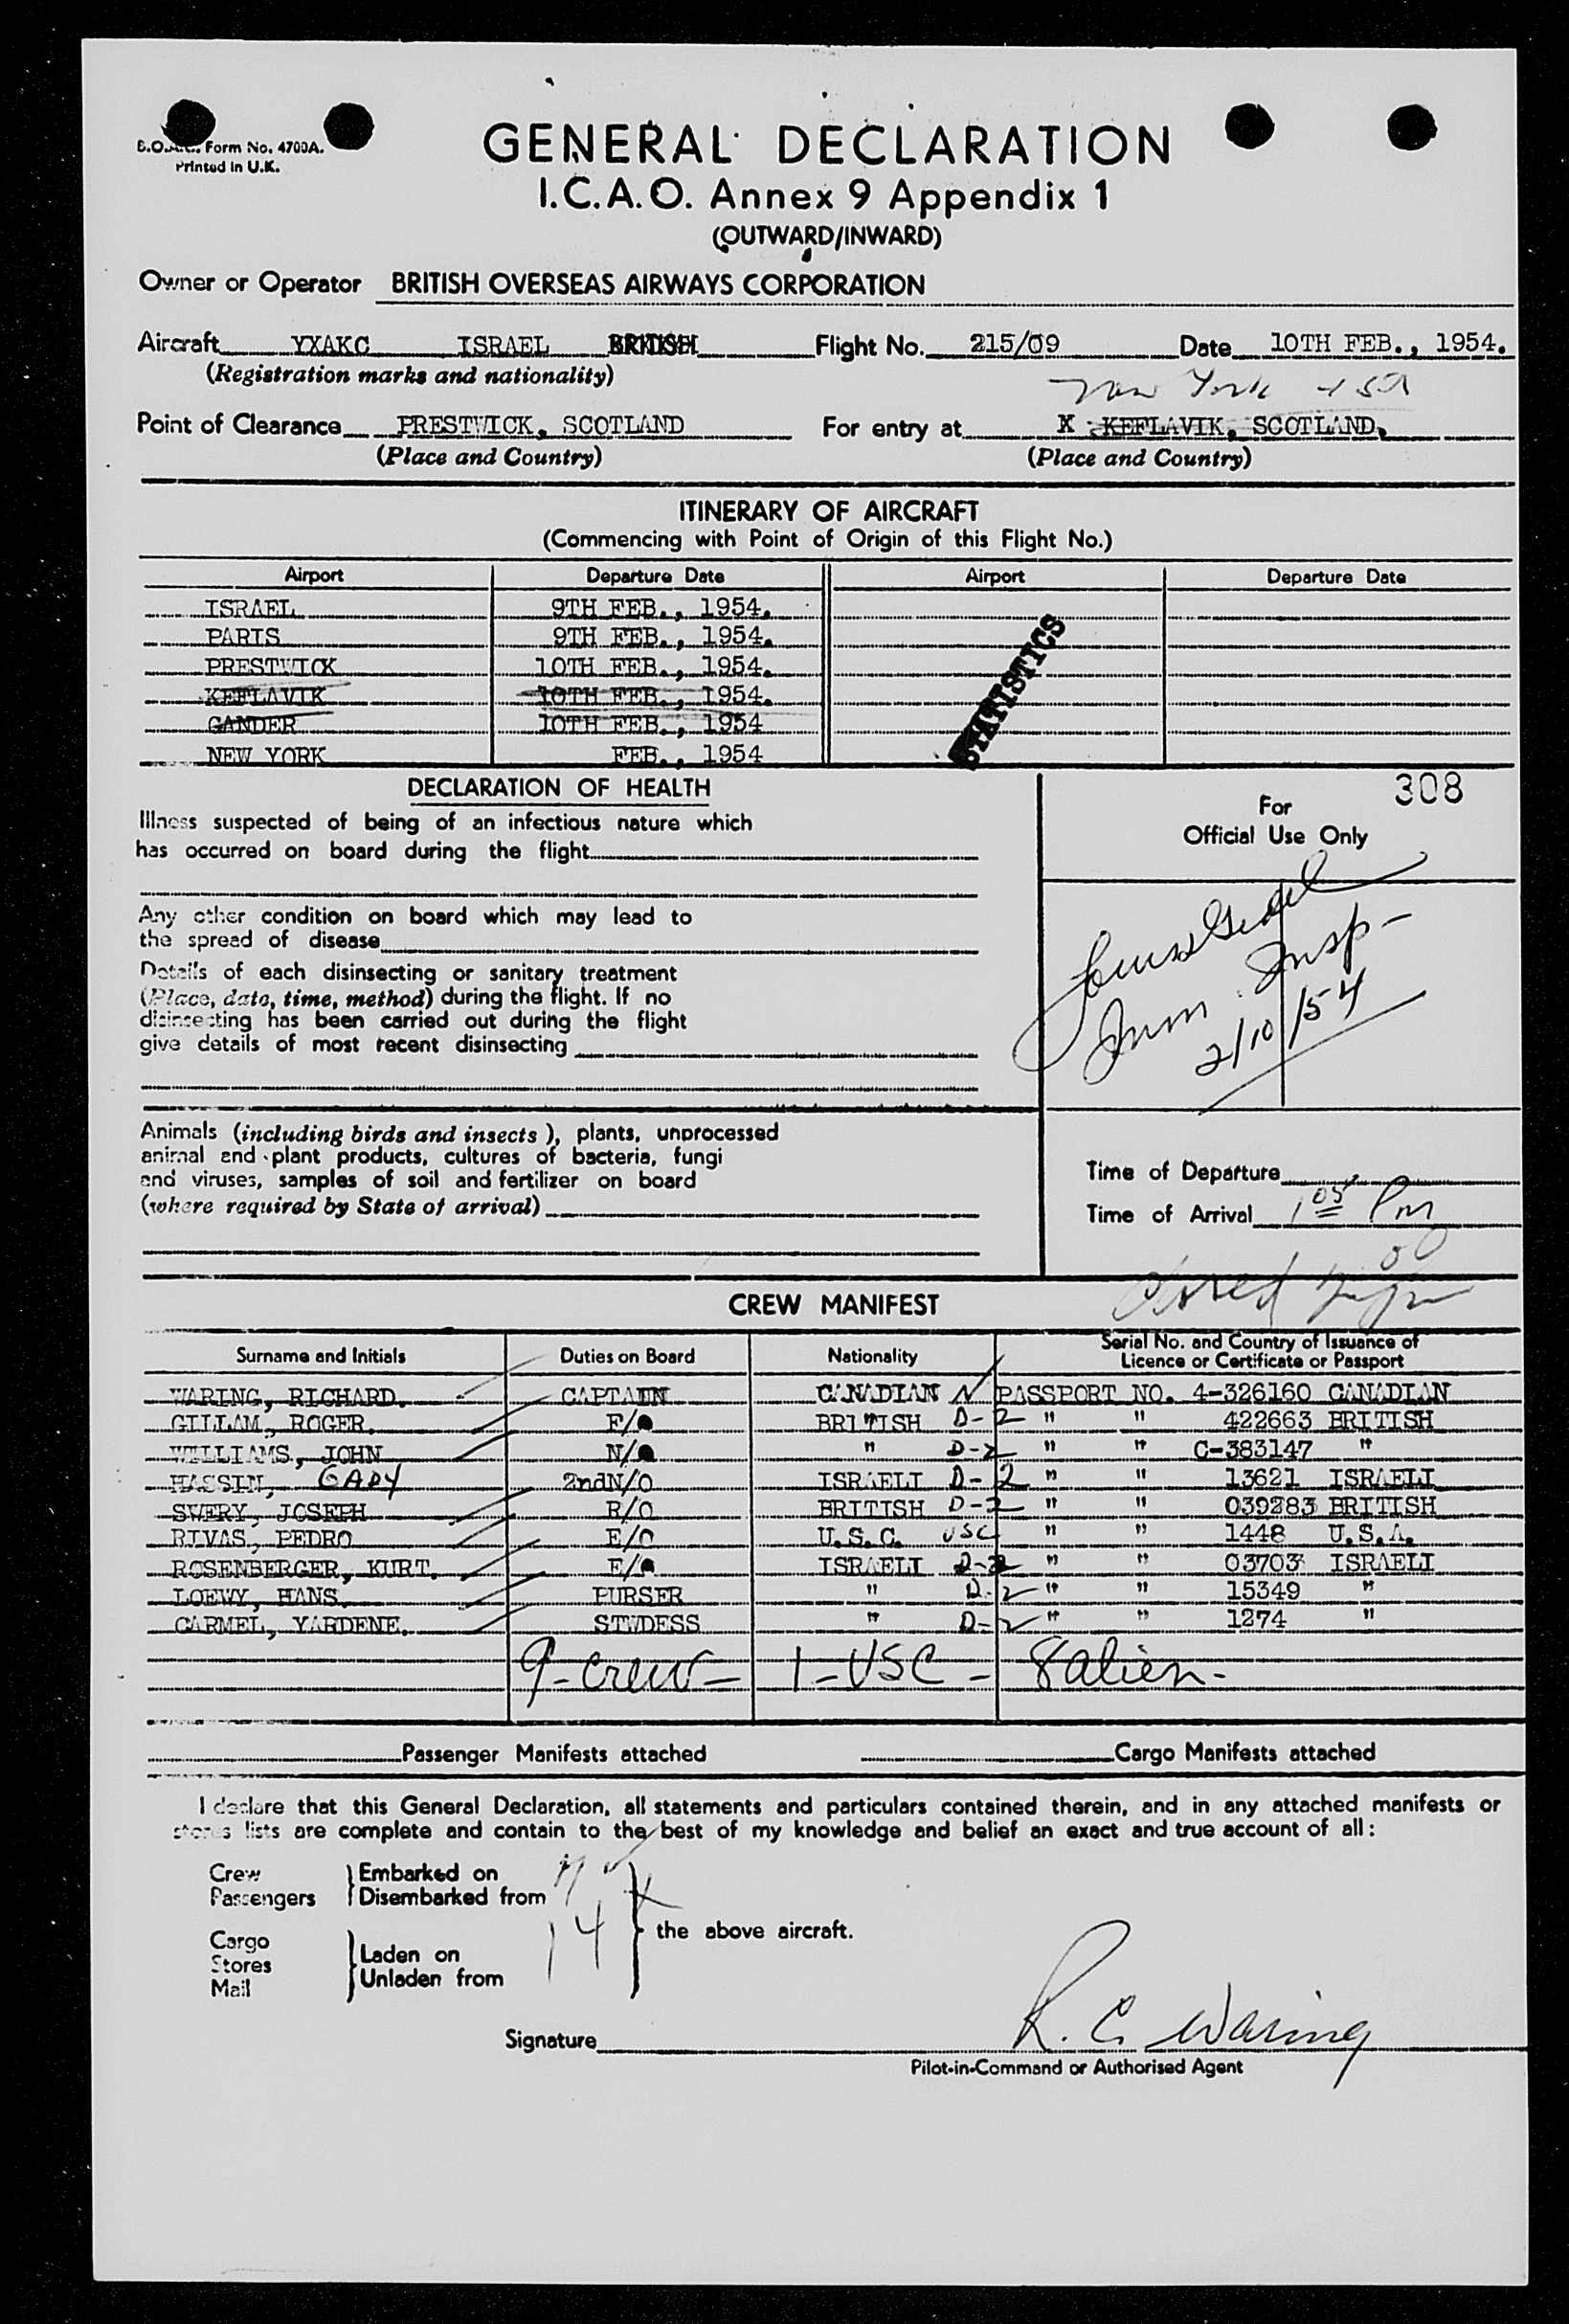 B.O.A.C. Form No. 4700A.
Printed in U.K.
GENERAL DECLARATION
I.C.A.O. Annex 9 Appendix 1
(OUTWARD/INWARD)
Owner or Operator BRITISH OVERSEAS AIRWAYS CORPORATION
Aircraft YXAKC ISRAEL BRITISH Flight No. 215/09 Date 10TH FEB., 1954.
(Registration marks and nationality)
New York USA
Point of Clearance PRESTWICK, SCOTLAND For entry at X KEFLAVIK, SCOTLAND,
(Place and Country) (Place and Country)
ITINERARY OF AIRCRAFT
(Commencing with Point of Origin of this Flight No.)
Airport Departure Date Airport Departure Date
ISRAEL 9TH FEB., 1954.
PARIS 9TH FEB., 1954.
PRESTWICK 10TH FEB., 1954.
KEFLAVIK 10TH FEB., 1954.
GANDER 10TH FEB., 1954
NEW YORK FEB., 1954
STATISTICS
DECLARATION OF HEALTH
Illness suspected of being of an infectious nature which
has occurred on board during the flight
Any other condition on board which may lead to
the spread of disease
Details of each disinsecting or sanitary treatment
(Place, date, time, method) during the flight. If no
disinsecting has been carried out during the flight
give details of most recent disinsecting
Animals (including birds and insects), plants, unprocessed
animal and plant products, cultures of bacteria, fungi
and viruses, samples of soil and fertilizer on board
(where required by State of arrival)
308
For
Official Use Only
Imm. Insp-
2/10/54
Time of Departure
Time of Arrival 1 05 Pm
CREW MANIFEST
Surname and Initials Duties on Board Nationality Serial No. and Country of Issuance of
Licence or Certificate or Passport
WARING, RICHARD. CAPTAIN CANADIAN N PASSPORT NO. 4-326160 CANADIAN
GILLAM, ROGER. F/O BRITISH D-2 " " 422663 BRITISH
WILLIAMS, JOHN N/O " D-2 " " C-383147 "
HASSIN, GADY 2ndN/O ISRAELI D-2 " " 13621 ISRAELI
SWERY, JOSEPH R/O BRITISH D-2 " " 039283 BRITISH
RIVAS, PEDRO E/O U.S.C. USC " " 1448 U.S.A.
ROSENBERGER, KURT. F/O ISRAELI D-2 " " 03703 ISRAELI
LOEWY, HANS. PURSER " D-2 " " 15349 "
CARMEL, YARDENE. STWDESS " D-2 " " 1274 "
9-crew- 1-USC- 8 alien-
Passenger Manifests attached Cargo Manifests attached
I declare that this General Declaration, all statements and particulars contained therein, and in any attached manifests or
stores lists are complete and contain to the best of my knowledge and belief an exact and true account of all:
Crew Embarked on
Passengers Disembarked from
the above aircraft.
Cargo
Stores Laden on
Mail Unladen from
14
Signature R. C. Waring
Pilot-in-Command or Authorised Agent